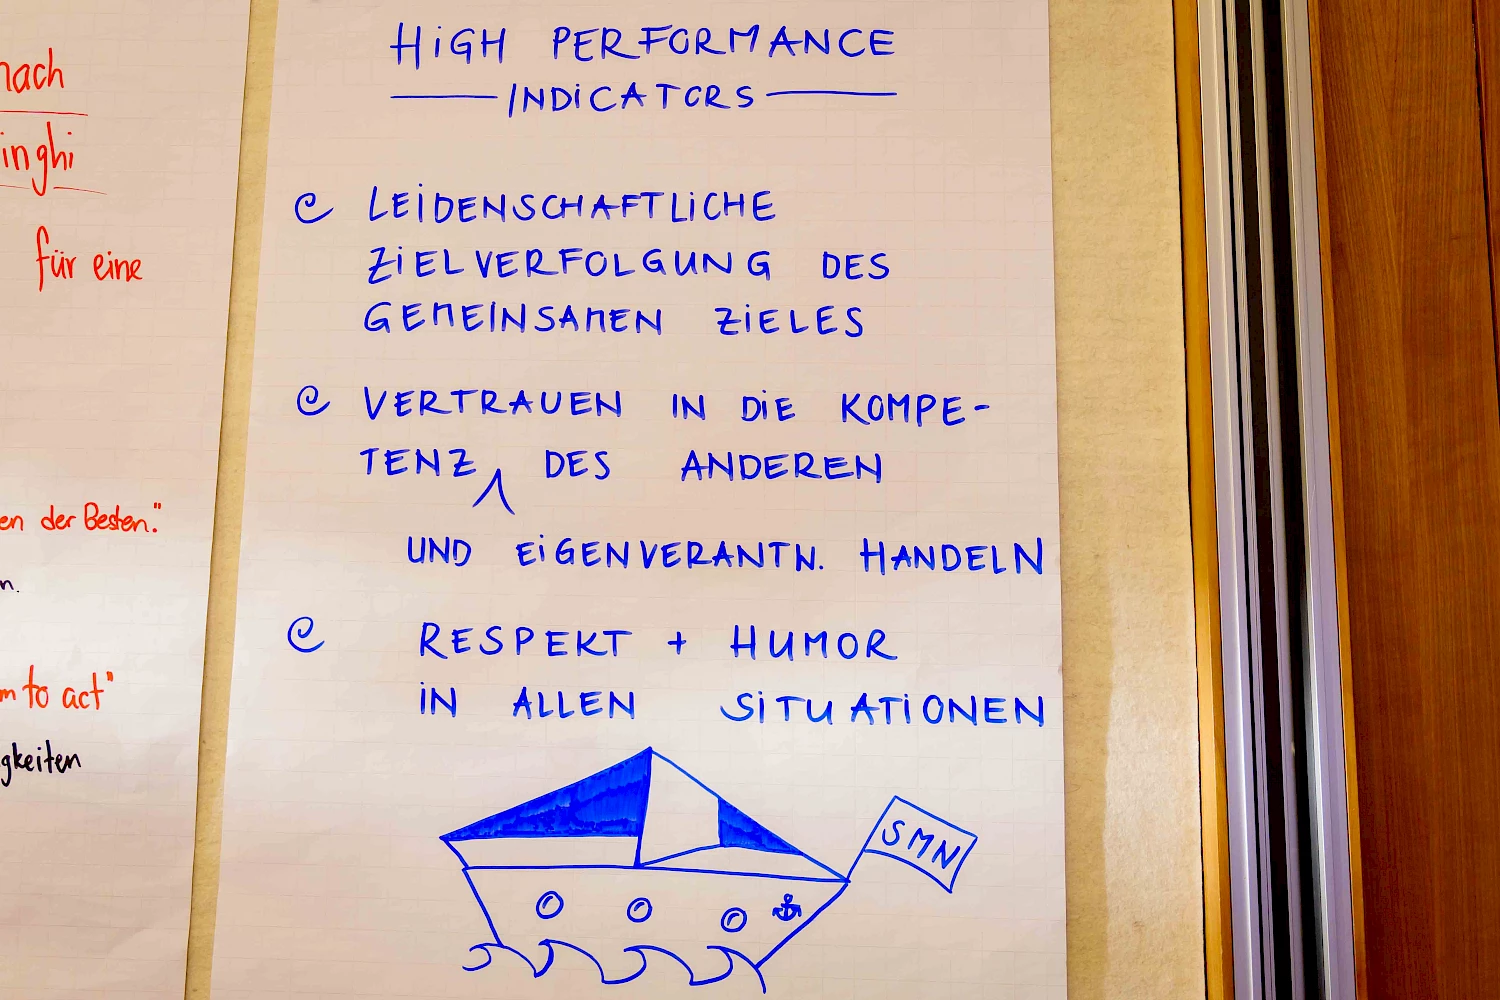 nach
inghi
für eine
en der Besten."
n.
m to act"
gkeiten
HIGH PERFORMANCE
INDICATORS
LEIDENSCHAFTLICHE
ZIELVERFOLGUNG DES
GEMEINSAMEN ZIELES
VERTRAUEN IN DIE KOMPE-
TENZ DES ANDEREN
UND EIGENVERANTN. HANDELN
RESPEKT + HUMOR
IN ALLEN SITUATIONEN
SMN